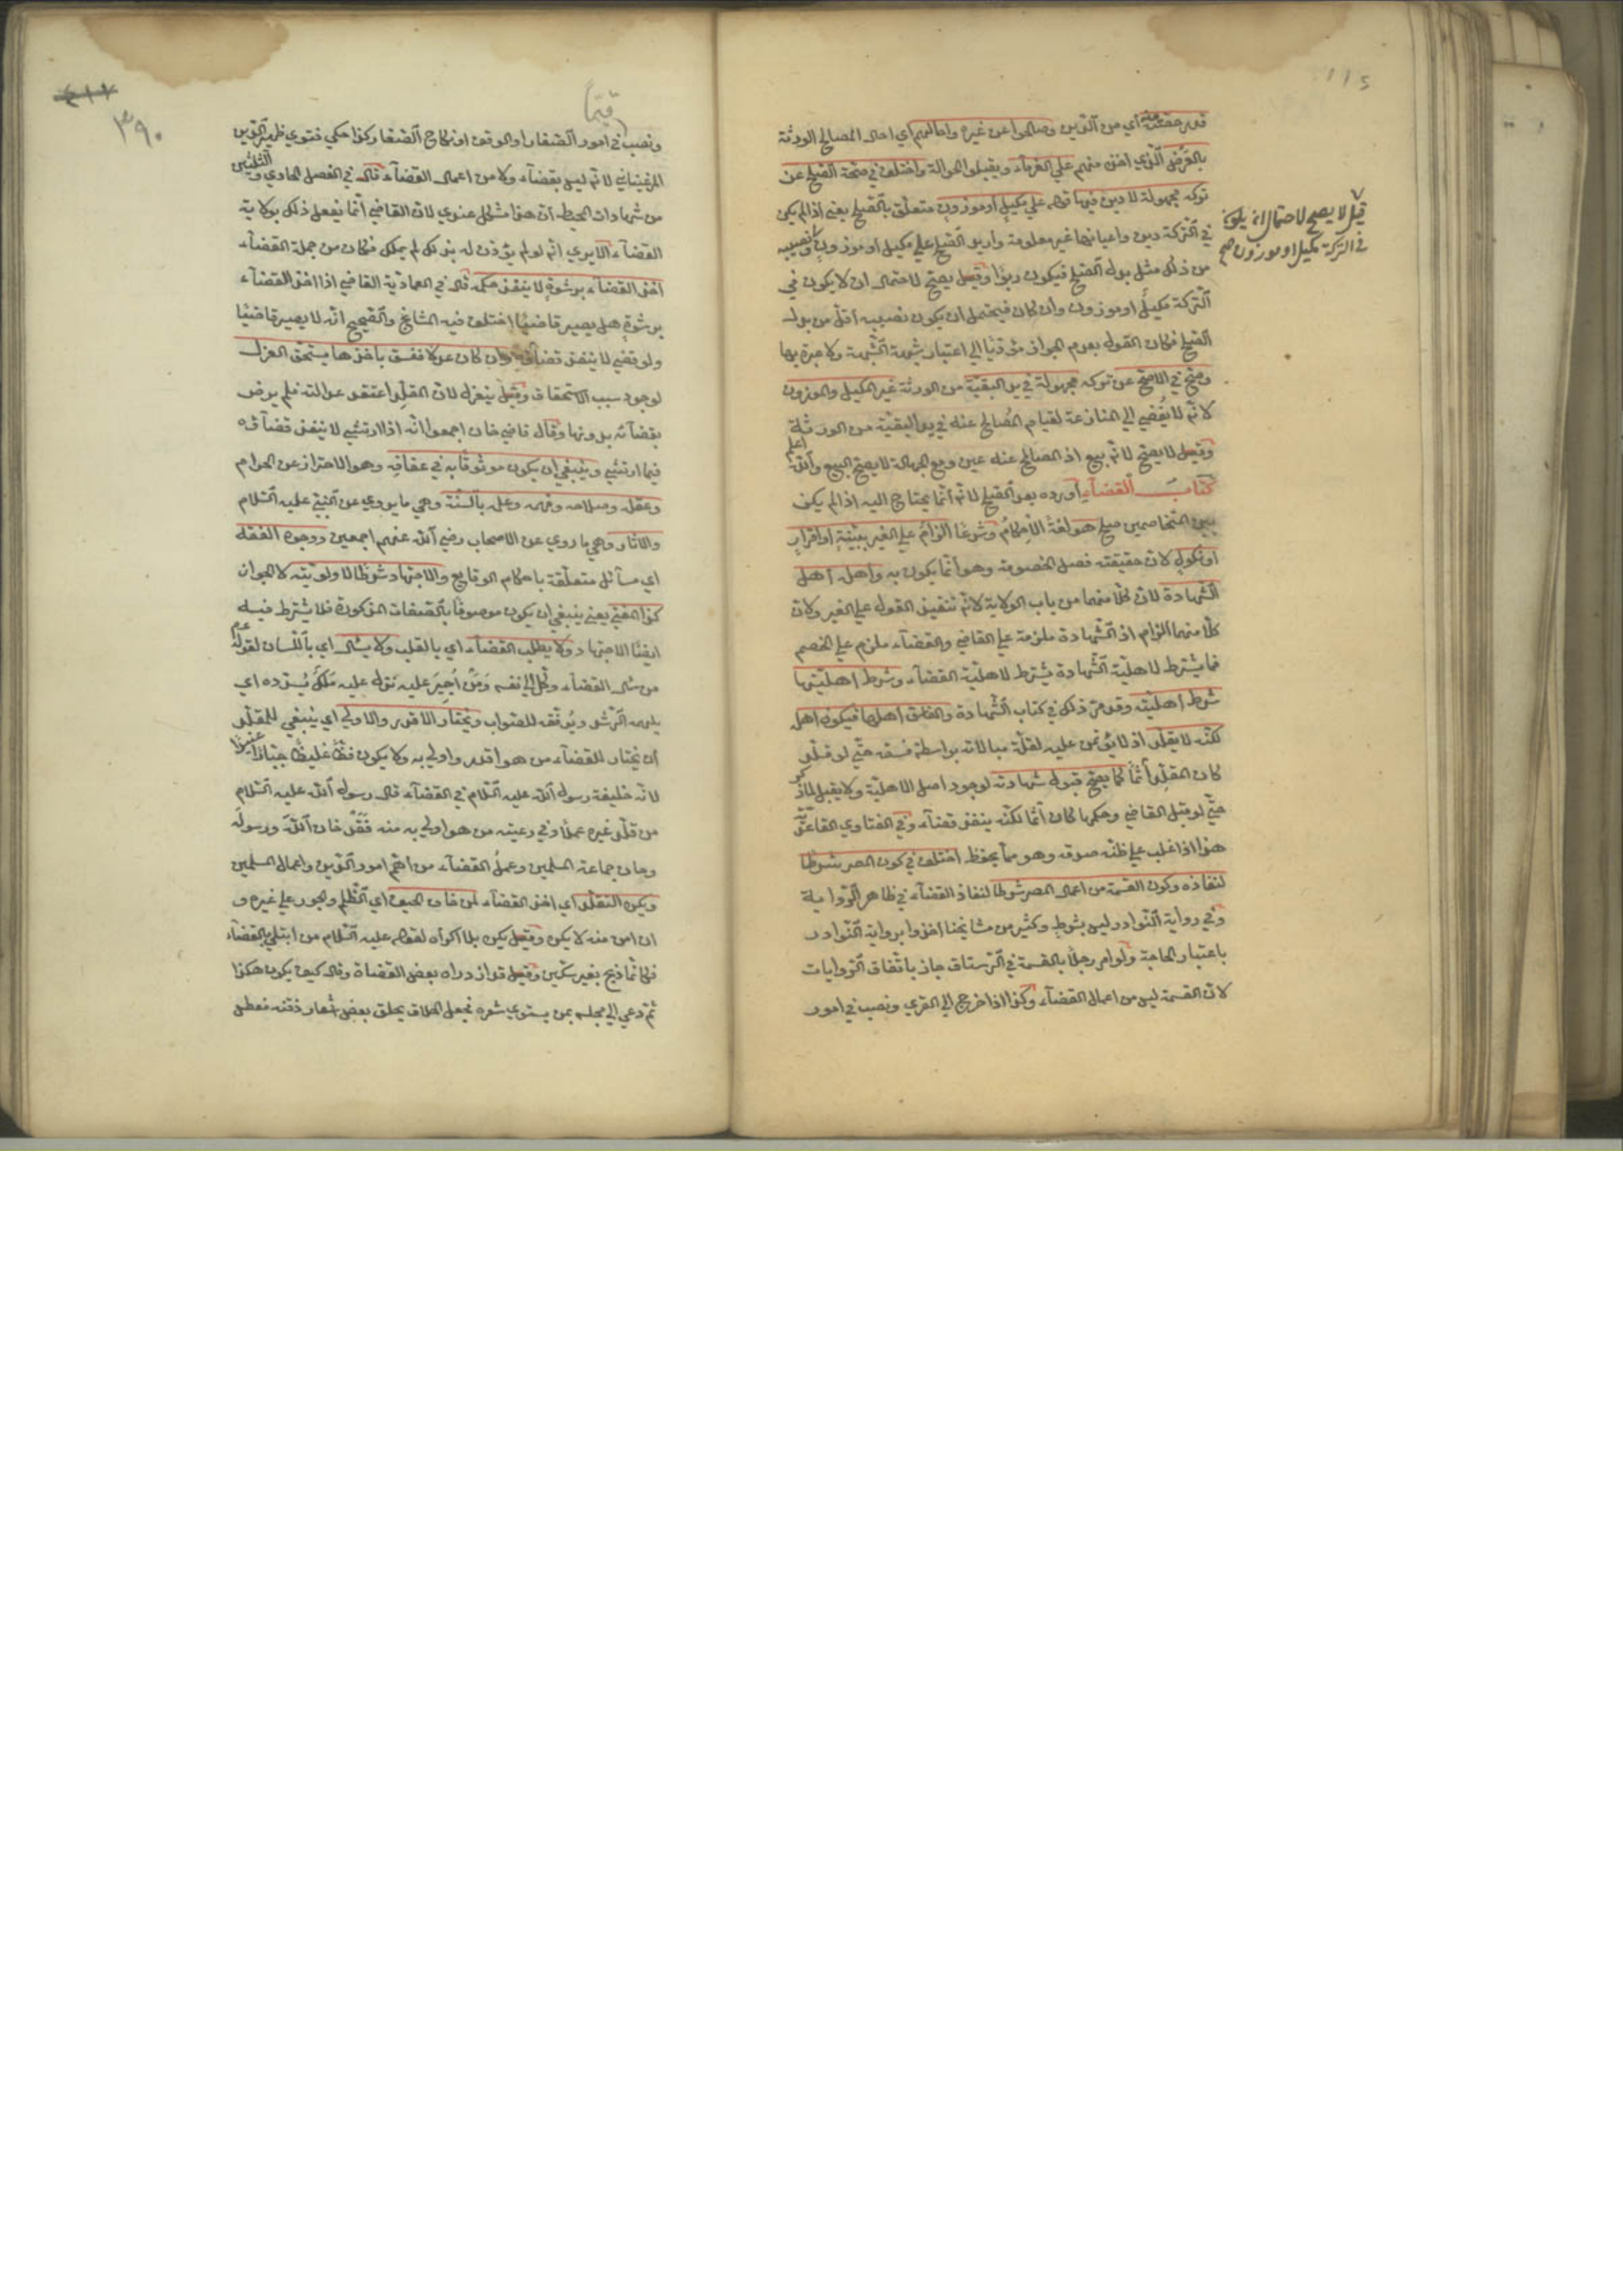 قدر حصته منه أي من الدين وصالحوا عن غيره واحالهم أي احال المصالح الورثة
بالقرض الذي اخذ منهم علي الغرماء ويقبلوا الحوالة واختلف في صحة الصلح عن
تركه مجهولة لا دين فيها قوله علي مكيل أو موزون متعلق بالصلح يعني اذا لم يكن
في التركة دين واعيانها غير معلومة واريد الصلح علي مكيل او موزون ونصيبه
من ذلك مثل بدل الصلح فيكون ربوا وقيل يصح لاحتمال ان لا يكون في
التركة مكيل او موزون وان كان فيحتمل ان يكون نصيبه أقل من بدل
الصلح فكان القول بعدم الجواز مؤديا الي اعتبار شبهة الشبهة ولا عبرة بها
وصح في الاصح عن تركه مجهولة في يد البقية من الورثة غير المكيل والموزون
لانه لا يفضي الي المنازعة لقيام المصالح عنه في يد البقية من الورثة
وقيل لا يصح لانه بيع اذ المصالح عنه عين ومع الجهالة لا يصح البيع والله اعلم
كتاب القضاء أورده بعد الصلح لانه انما يحتاج اليه اذا لم يكن
بين المتخاصمين صلح هو لغة الاحكام وشرعا الزام علي الغير ببينة او اقرار
او نكول لان حقيقته فصل الخصومة وهو انما يكون به واهله اهل
الشهادة لان كلا منهما من باب الولاية لانه تنفيذ القول علي الغير ولان
كلا منهما الزام اذ الشهادة ملزمة علي القاضي والقضاء ملزم علي الخصم
فما يشترط لاهلية الشهادة يشترط لاهلية القضاء وشرط اهليتها
شرط اهليته وقد مر ذلك في كتاب الشهادة والفاسق اهلها فيكون اهله
لكنه لا يقلد اذ لا يؤتمن عليه لقلة مبالاته بواسطة فسقه حتي لو قلد
كان المقلد آثما كما يصح قبول شهادته لوجود اصل الاهلية ولا يقبل لما ذكر
حتي لو قبل القاضي وحكم بها كان آثما لكنه ينفذ قضاء وفي الفتاوي القاعدية
هذا اذا غلب علي ظنه صدقه وهو مما يحفظ اختلف في كون المصر شرطا
لنفاذه وكون القسمة من اعمال المصر شرطا لنفاذ القضاء في ظاهر الرواية
وفي رواية النوادر ليس بشرط وكثير من مشايخنا اخذوا برواية النوادر
باعتبار الحاجة ولو امر رجلا بالقسمة في الرستاق جاز باتفاق الروايات
لان القسمة ليس من اعمال القضاء وكذا اذا خرج الي القري ونصب في امور
قيل لا يصح لاحتمال ان يكون
في التركة مكيل او موزون صح
٣٩٠
قيما
ونصب في امور الصغار او الوقف او نكاح الصغار وكذا حكي فتوي ظهير الدين
المرغيناني لانه ليس بقضاء ولا من اعمال القضاء قال في الفصل الحادي والثلثين
من شهادات المحيط ان هذا مشكل عندي لان القاضي انما يفعل ذلك بولاية
القضاء الا يري انه لو لم يؤذن له بذلك لم يملك فكان من جملة القضاء
اخذ القضاء برشوة لا ينفذ حكمه قال في العمادية القاضي اذا اخذ القضاء
برشوة هل يصير قاضيا اختلف فيه المشايخ والصحيح انه لا يصير قاضيا
ولو قضي لا ينفذ قضاؤه وان كان عدلا ففسق باخذها يستحق العزل
لوجود سبب الاستحقاق وقيل ينعزل لان المقلد اعتقد عدالته فلم يرض
بقضائه بدونها وقال قاضي خان اجمعوا انه اذا ارتشي لا ينفذ قضاؤه
فيما ارتشي وينبغي ان يكون موثوقا به في عفافه وهو الاحتراز عن الحرام
وعقله وصلاحه وفهمه وعلمه بالسنة وهي ما يروي عن النبي عليه السلام
والاثار وهي ما روي عن الاصحاب رضي الله عنهم اجمعين ووجوه الفقه
اي مسائل متعلقة باحكام الوقايع والاجتهاد شرط للاولوية لا الجواز
كذا المفتي يعني ينبغي ان يكون موصوفا بالصفات المذكورة فلا يشترط فيه
ايضا الاجتهاد ولا يطلب القضاء اي بالقلب ولا يسأل اي باللسان لقوله عم
من سأل القضاء وكل الي نفسه ومن أجبر عليه نزل عليه ملك يسدده اي
يلهمه الرشد ويوفقه للصواب ويختار الاقدر والاولي اي ينبغي للمقلد
ان يختار للقضاء من هو اقدر واولي به ولا يكون فظا غليظا جبارا عنيدا
لانه خليفة رسول الله عليه السلام في القضاء قال رسول الله عليه السلام
من قلد غيره عملا وفي رعيته من هو اولي به منه فقد خان الله ورسوله
وخان جماعة المسلمين وعمل القضاء من اهم امور الدين واعمال المسلمين
ويكره التقلد اي اخذ القضاء لمن خاف الحيف اي الظلم والجور علي غيره و
ان امن منه لا يكره وقيل يكره بلا اكراه لقوله عليه السلام من ابتلي بالقضاء
فكانما ذبح بغير سكين وقيل قد ازدراه بعض القضاة وقال كيف يكون هكذا
ثم دعي الي مجلسه بمن يسوي شعره فجعل الحلاق يحلق بعض شعار ذقنه فعطس